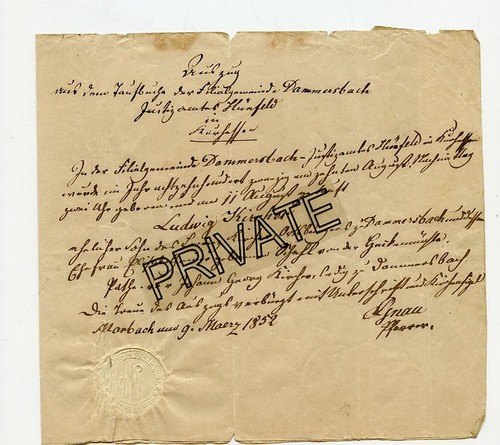 Auszug
aus dem Taufbuche der Filialgemeinde Dammersbach
Justizamtes Hünfeld
in
Kurhessen
In der Filialgemeinde Dammersbach, Justizamtes Hünfeld in Kurhessen
wurde im Jahr achtzehnhundert zwanzig und zehnten August, Nachmittag
zwei Uhr geboren und am 11 August getauft
Ludwig
ehelicher Sohn des zu Dammersbach und dessen
Ehefrau von der
Pathe war Johann Georg Kircher, ledig zu Dammersbach
Die Treue des Auszugs verbürgt mit Unterschrift und Kirchensiegel
Marbach am 9. Maerz 1852
Pfarrer.
PRIVATE